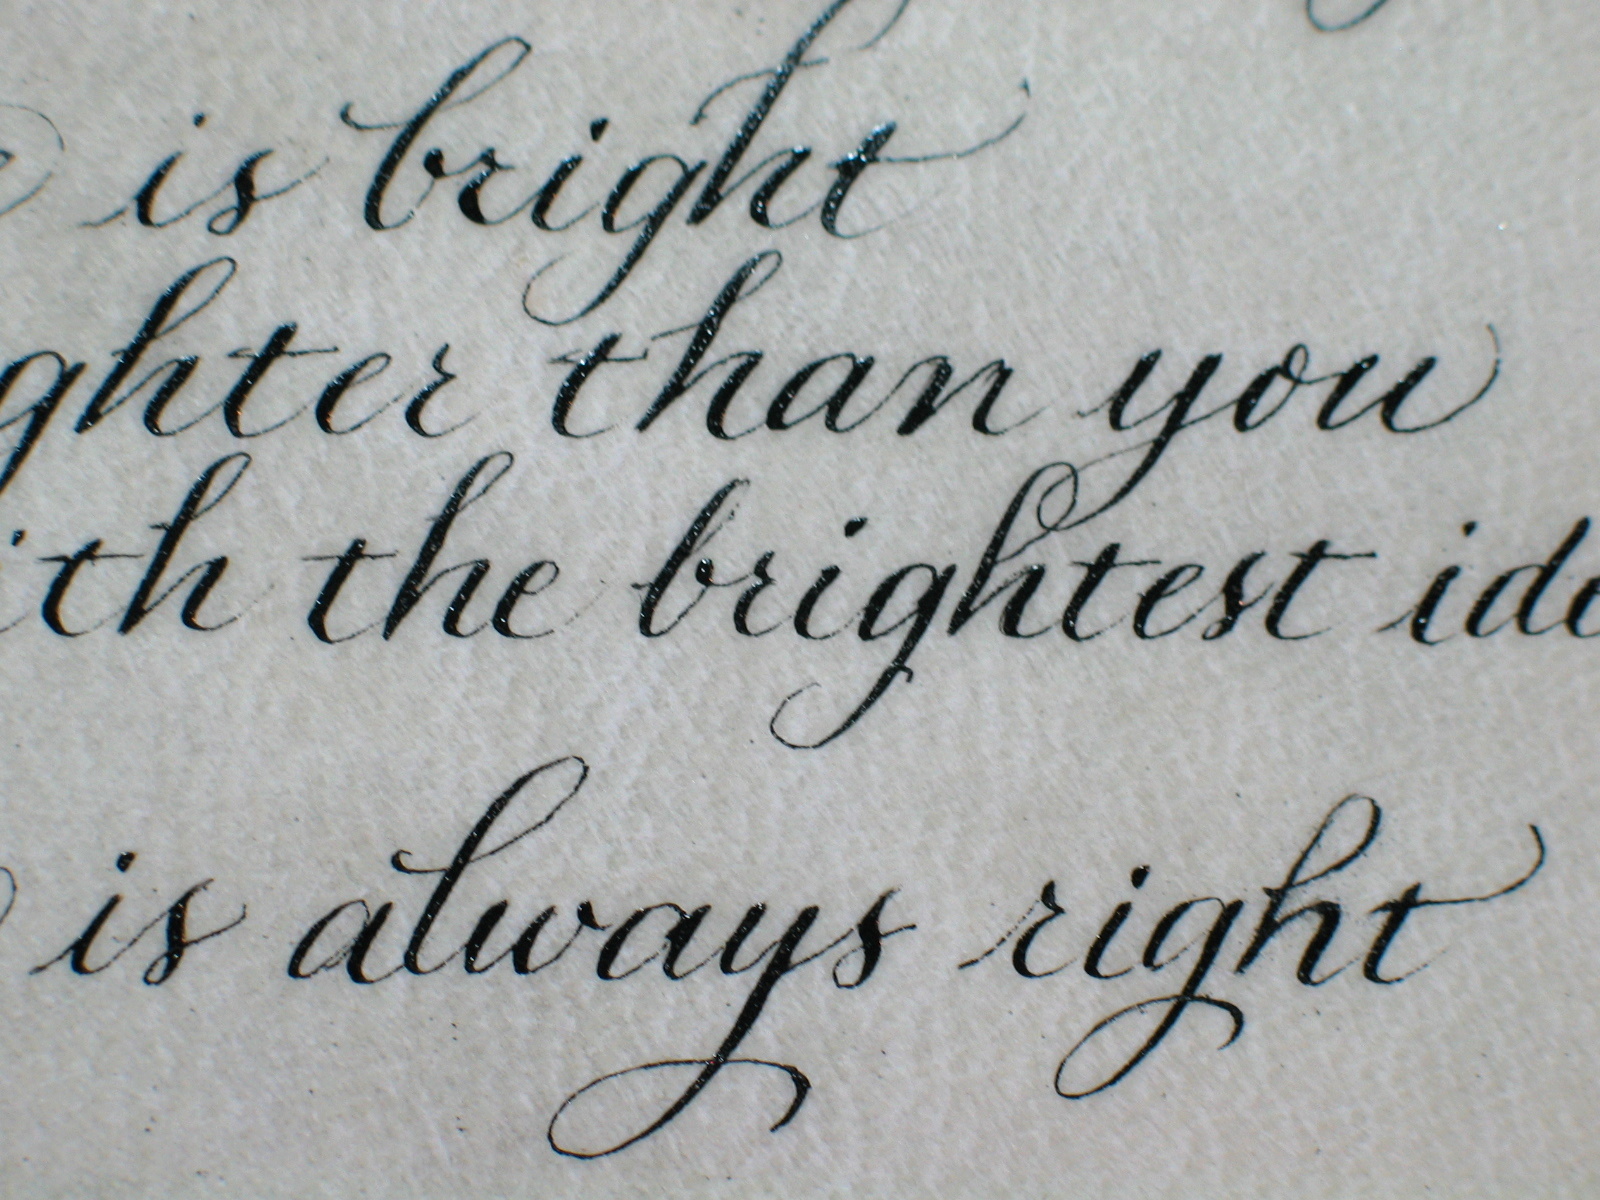 is bright
ghter than you
ith the brightest ide
is always right